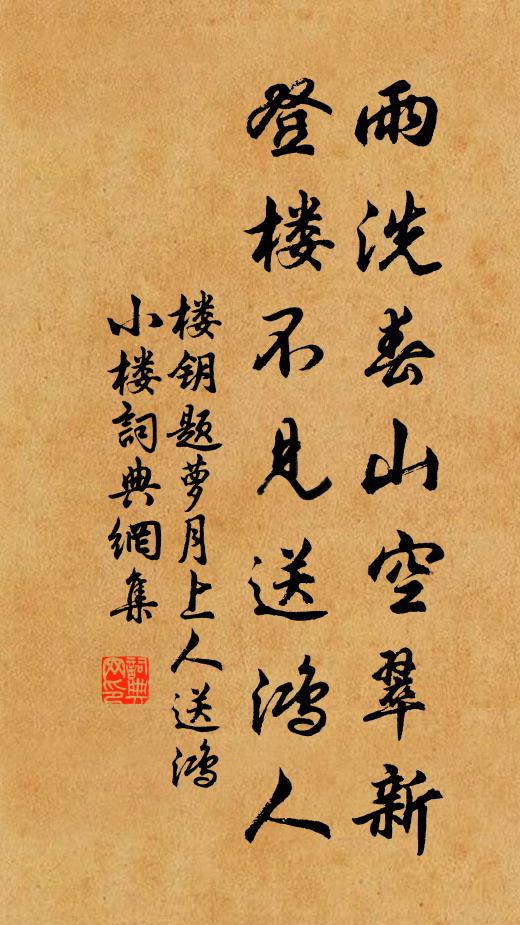 雨洗春山空翠新
登楼不见送鸿人
楼钥题萝月上人送鸿
小楼詞典網集
詞典网印